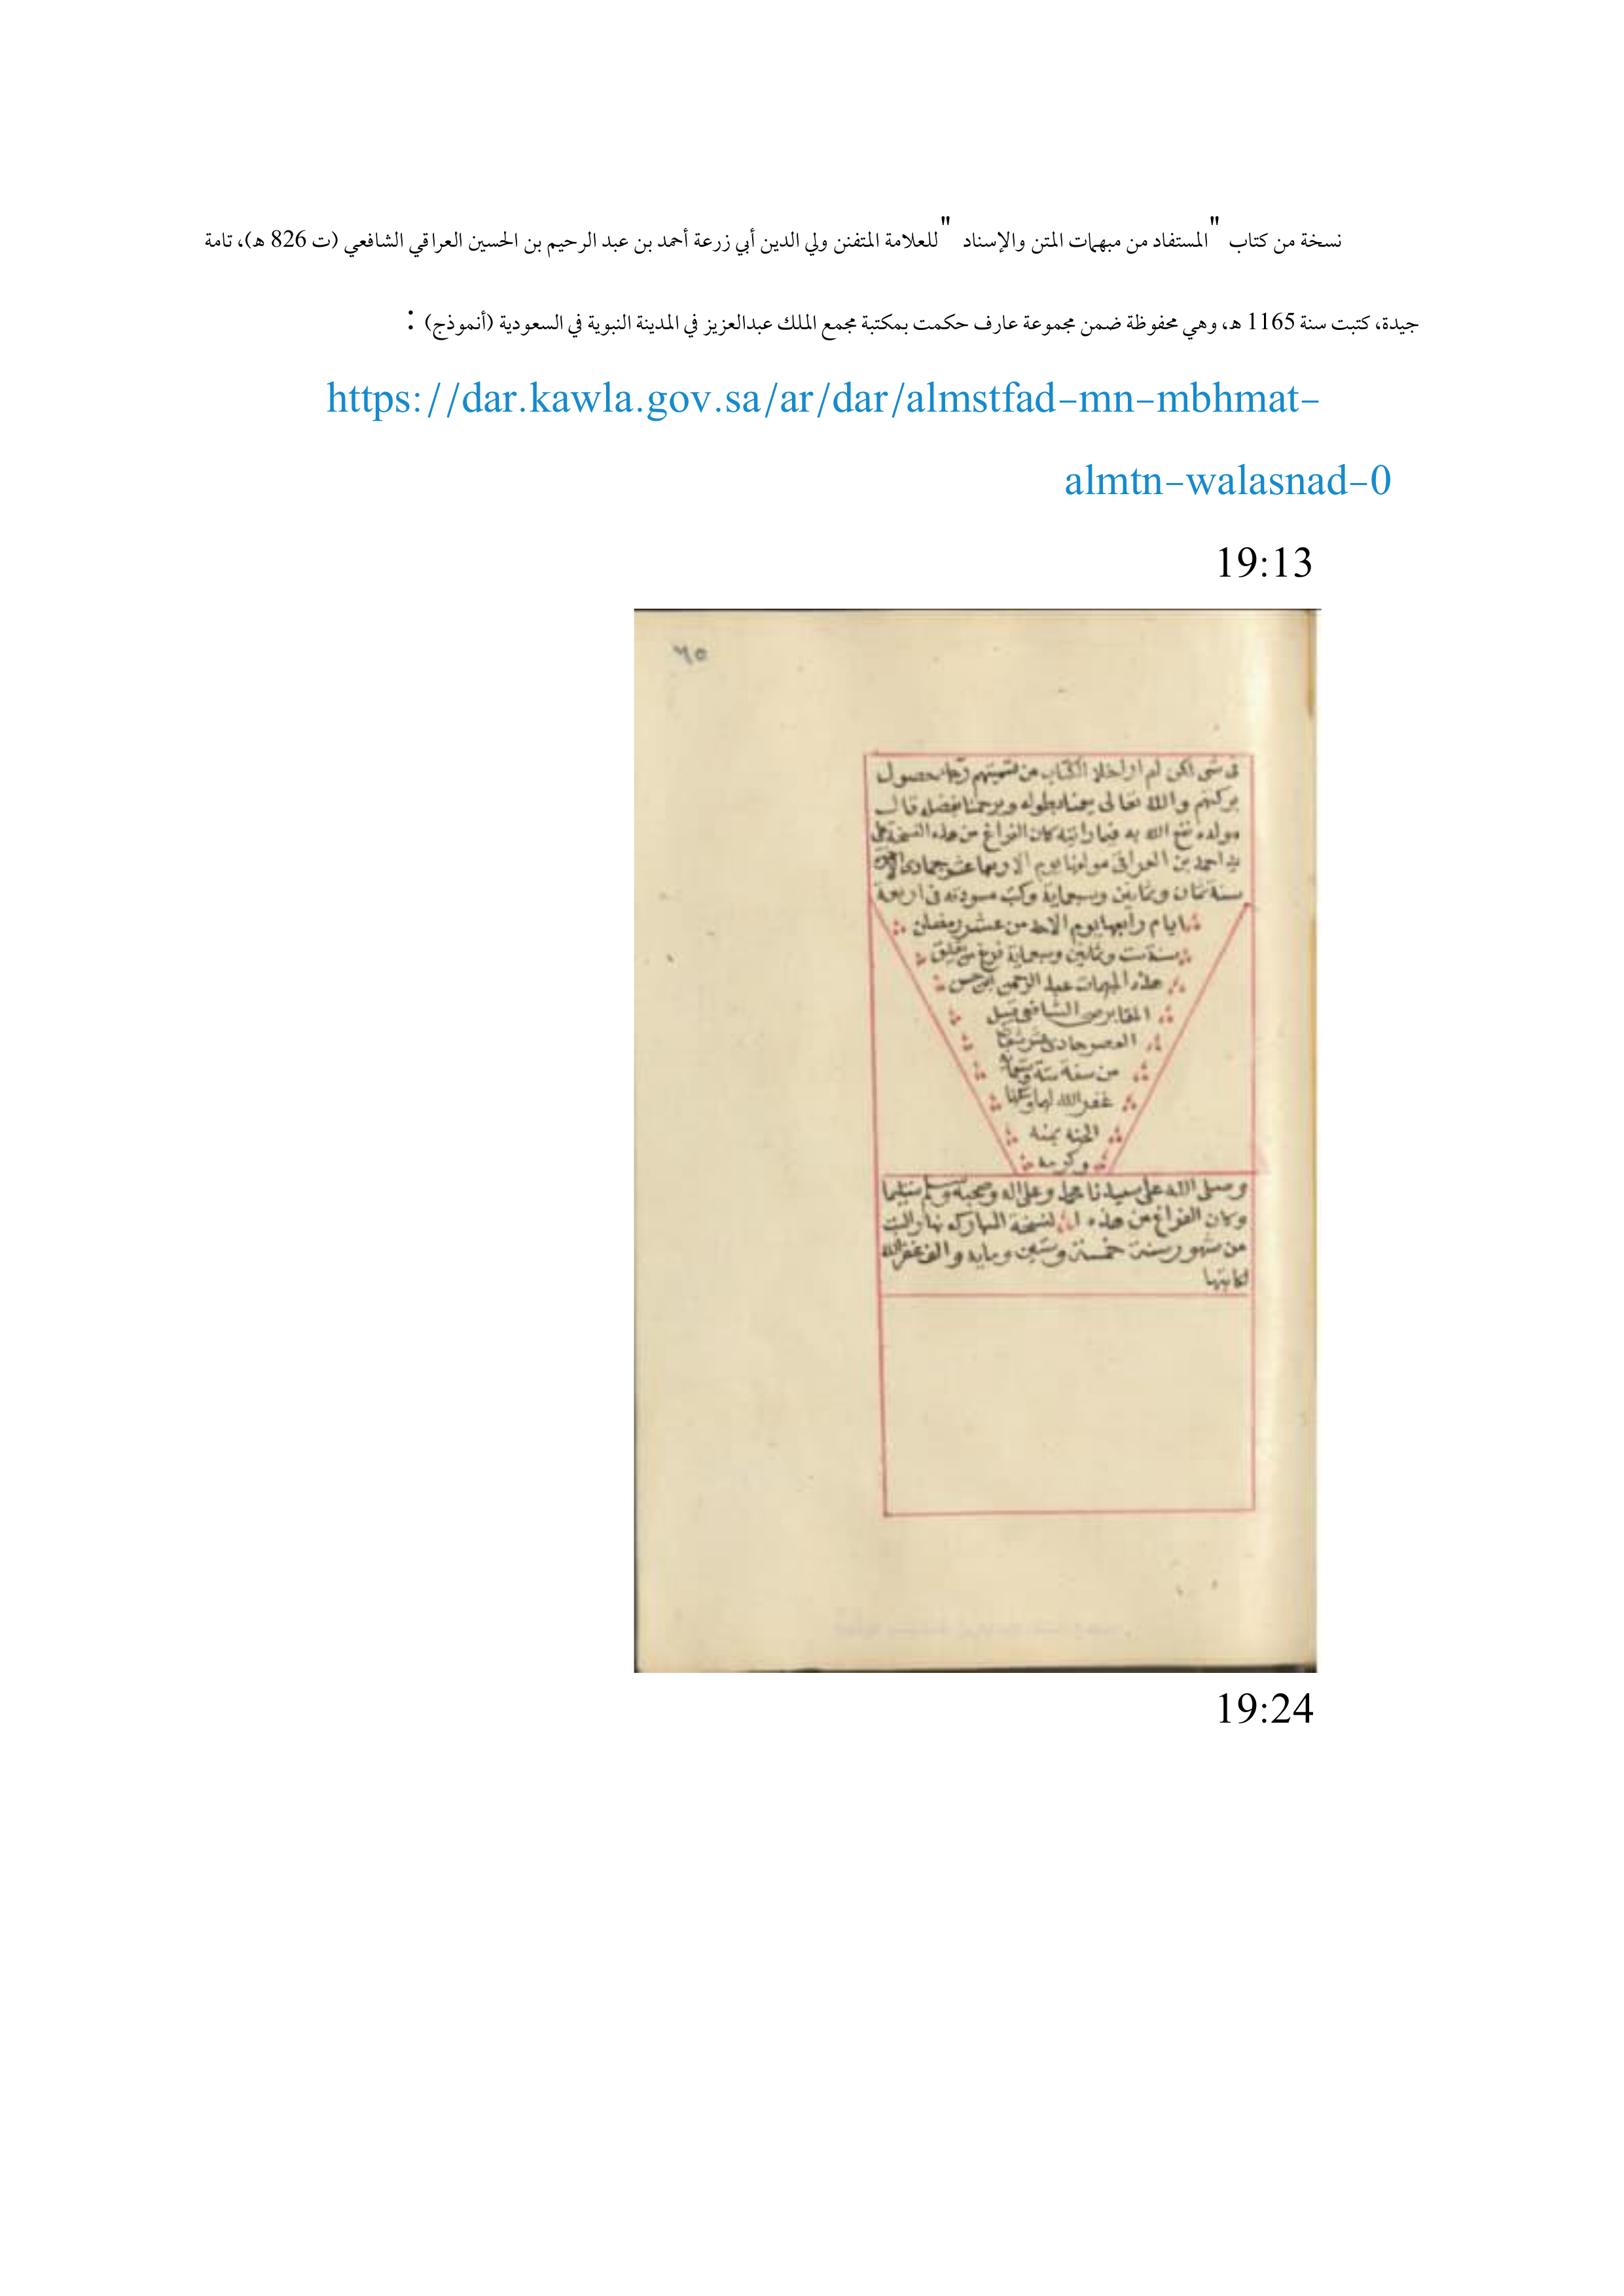 نسخة من كتاب "المستفاد من مبهمات المتن والإسناد" للعلامة المتفنن ولي الدين أبي زرعة أحمد بن عبد الرحيم بن الحسين العراقي الشافعي (ت 826 هـ)، تامة
جيدة، كتبت سنة 1165 هـ، وهي محفوظة ضمن مجموعة عارف حكمت بمكتبة مجمع الملك عبدالعزيز في المدينة النبوية في السعودية (أنموذج) :
https://dar.kawla.gov.sa/ar/dar/almstfad-mn-mbhmat-
almtn-walasnad-0
19:13
٦٥
في شي لكن لم ار اخلا الكتاب من تسميتهم رجا حصول
بركتهم والله تعالى يمنا بطوله ويرحمنا بفضله قال
مولده نفع الله به فيما رايته كان الفراغ من هذه النسخة على
يد احمد بن العراقي مولفها يوم الاربعا عشر جمادى
سنة ثمان وثمانين وسبعماية وكتب مسودته في اربعة
ايام رابعها يوم الاحد من عشر رمضان
سنة ست وثمانين وسبعماية فرغ من تعليق
هذه المبهمات عبد الرحمن بن حسن
الشافعي قبيل
العصر حادي عشر شعبان
من سنة ستة
غفر الله لهما
الجنة بمنه
وكرمه
وصلى الله على سيدنا محمد وعلى اله وصحبه وسلم تسليما
وكان الفراغ من هذه النسخة المباركه نهار السبت
من شهور سنة خمسة وستين ومايه والف غفر الله
لكاتبها
19:24